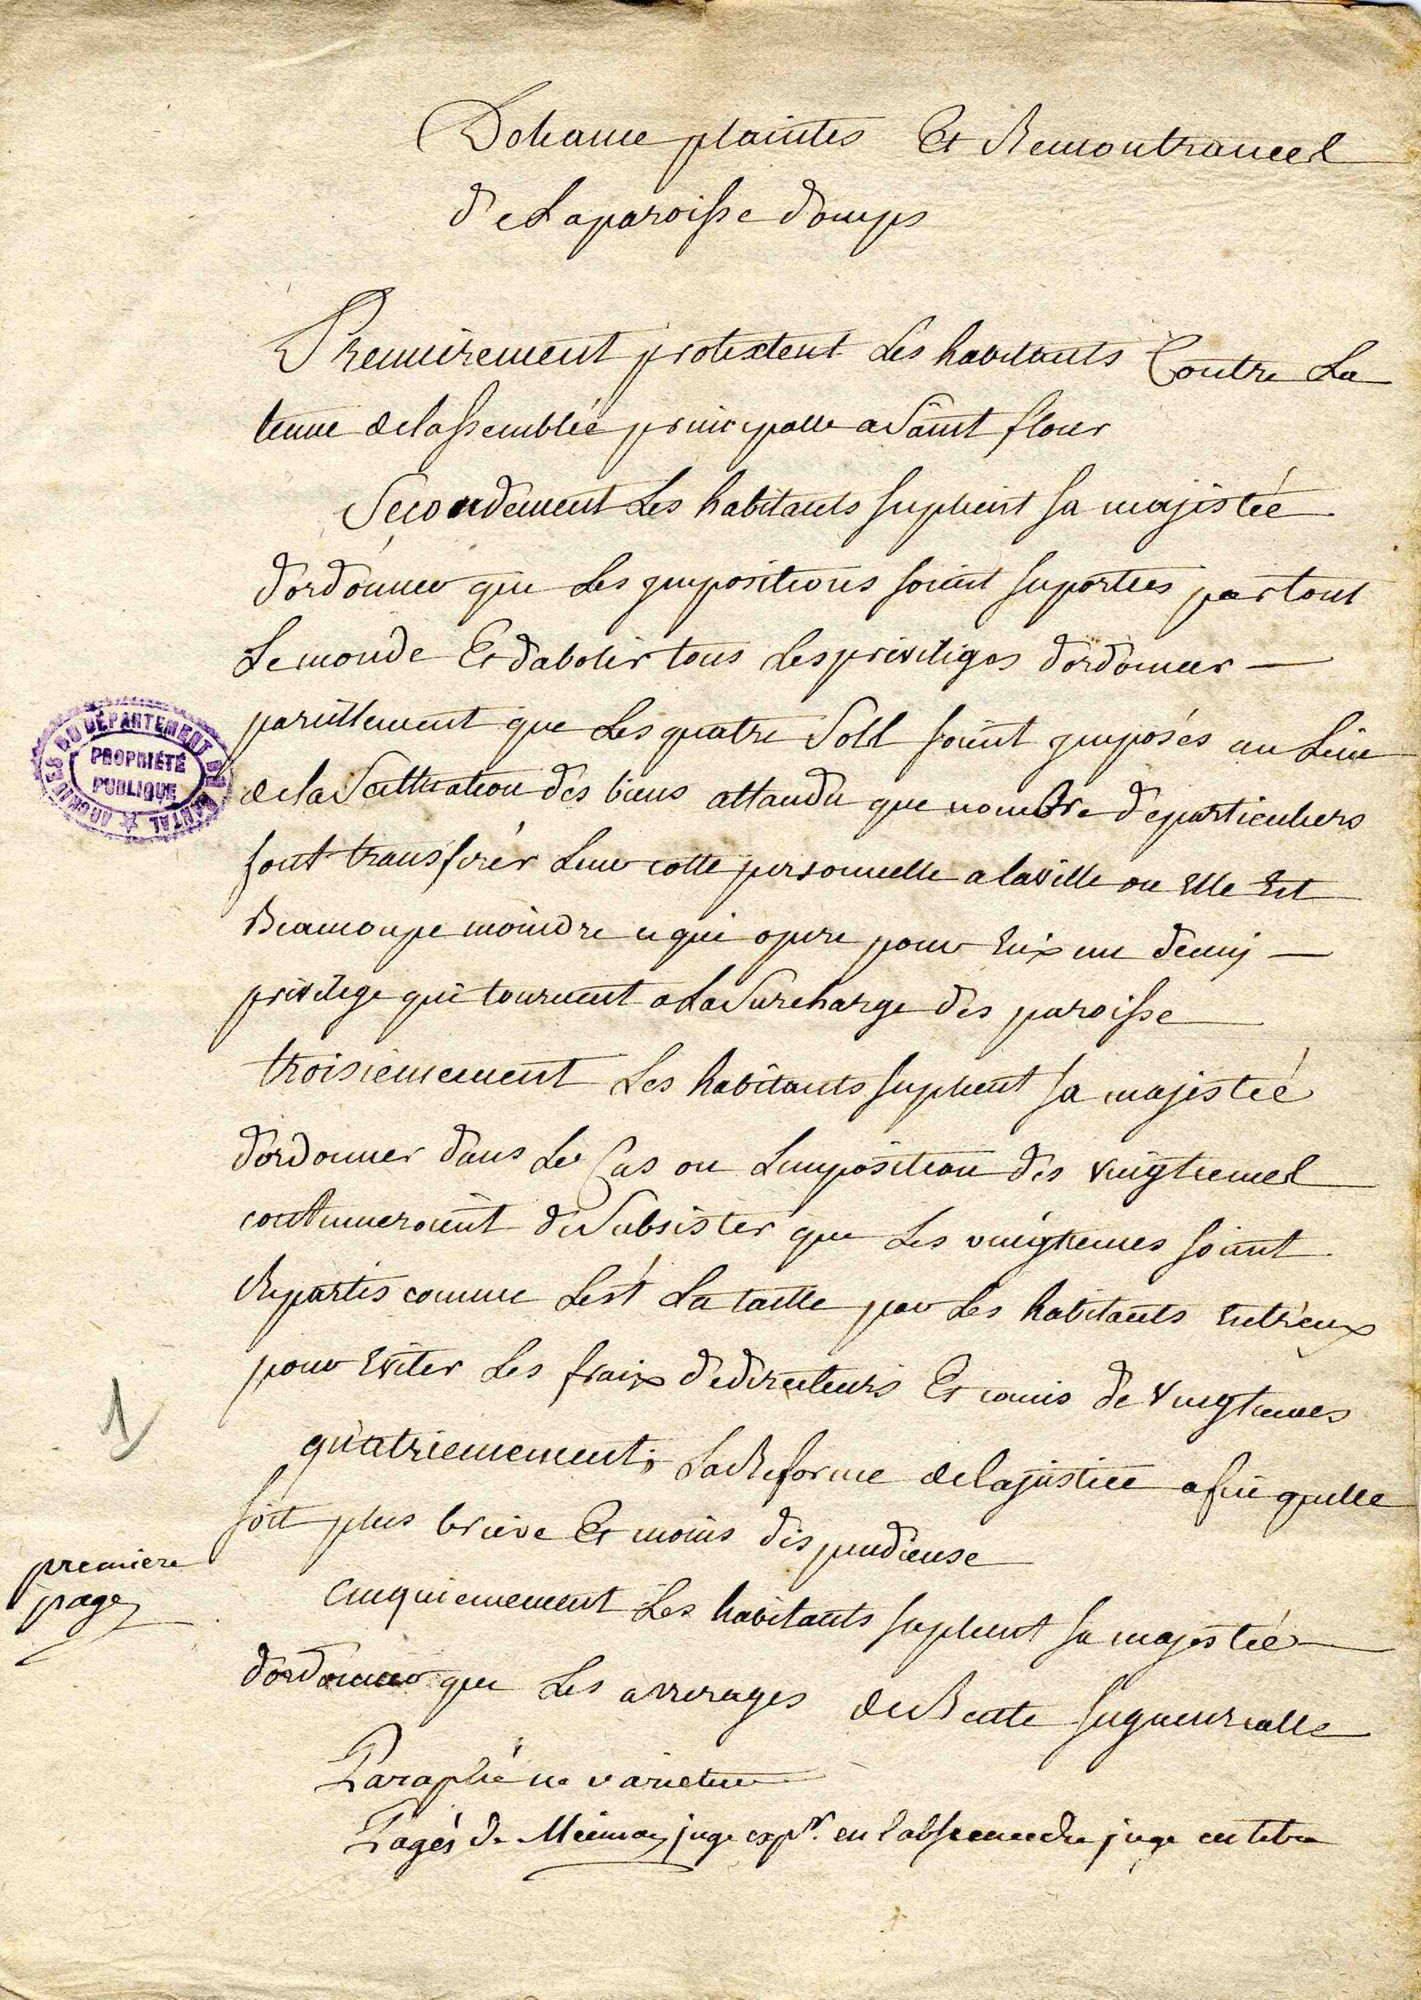 Doleance plaintes Et Remontrances
de La paroisse domps
Premierement protestent Les habitants Contre La
tenue de lassemblée principalle a Saint flour
Secondement Les habitants suplient sa majestée
dordonner que Les impositions soient suportées par tout
Le monde Et dabolir tous Les privileges dordonner
pareillement que Les quatre Sols soient imposés au Lieu
de la Scittuation des biens attandu que nombre de particuliers
font transferér Leur cotte personnelle a la ville ou Elle Est
Beaucoupe moindre ce qui opere pour Eux un demy
privilege qui tournent a La Surcharge des paroisse
troisiemement Les habitants suplient sa majestée
dordonner dans Le Cas ou Limposition des vingtiemes
continueroient de Subsister que Les vingtiemes soient
Repartis comme Lest La taille par Les habitants entreux
pour Eviter Les fraix de directeurs Et comis de vingtiemes
quatriemement, La Reforme de la justice afin quelle
soit plus brieve Et moins dispendieuse
cinquiemement Les habitants suplient sa majestée
dordonner que Les arrerages de Rente seigneurialle
Paraphé ne varietur
Pagés de juge exp.r en labscence du juge en titre
ARCHIVES DU DÉPARTEMENT DU CANTAL
PROPRIÉTÉ
PUBLIQUE
1
premiere
page